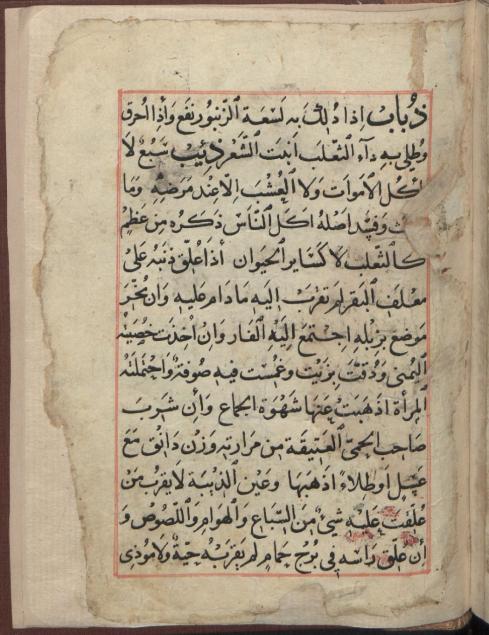 ذباب اذا دلك به لسعة الزنبور نفع واذا احرق
وطلي به دآء الثعلب انبت الشعر ذيب سبع لا
ياكل الاموات ولا العشب الا عند مرضه وما
وفسد اصله اكل الناس ذكره من عظم
كالثعلب لا كساير الحيوان اذا علق ذنبه على
معلف البقر لم تقرب اليه ما دام عليه وان بخر
موضع بزبله اجتمع اليه الفار وان اخذت خصيته
اليمنى ودقت بزيت وغمست فيه صوفة واحتملته
المراة اذهبت عنها شهوة الجماع وان شرب
صاحب الحمى العتيقة من مرارته وزن دانق مع
عسل او طلاء اذهبها وعين الذيبة لا يقرب من
علقت عليه شئ من السباع والهوام واللصوص و
ان علق راسه في برج حمام لم يقربه حية ولا موذي